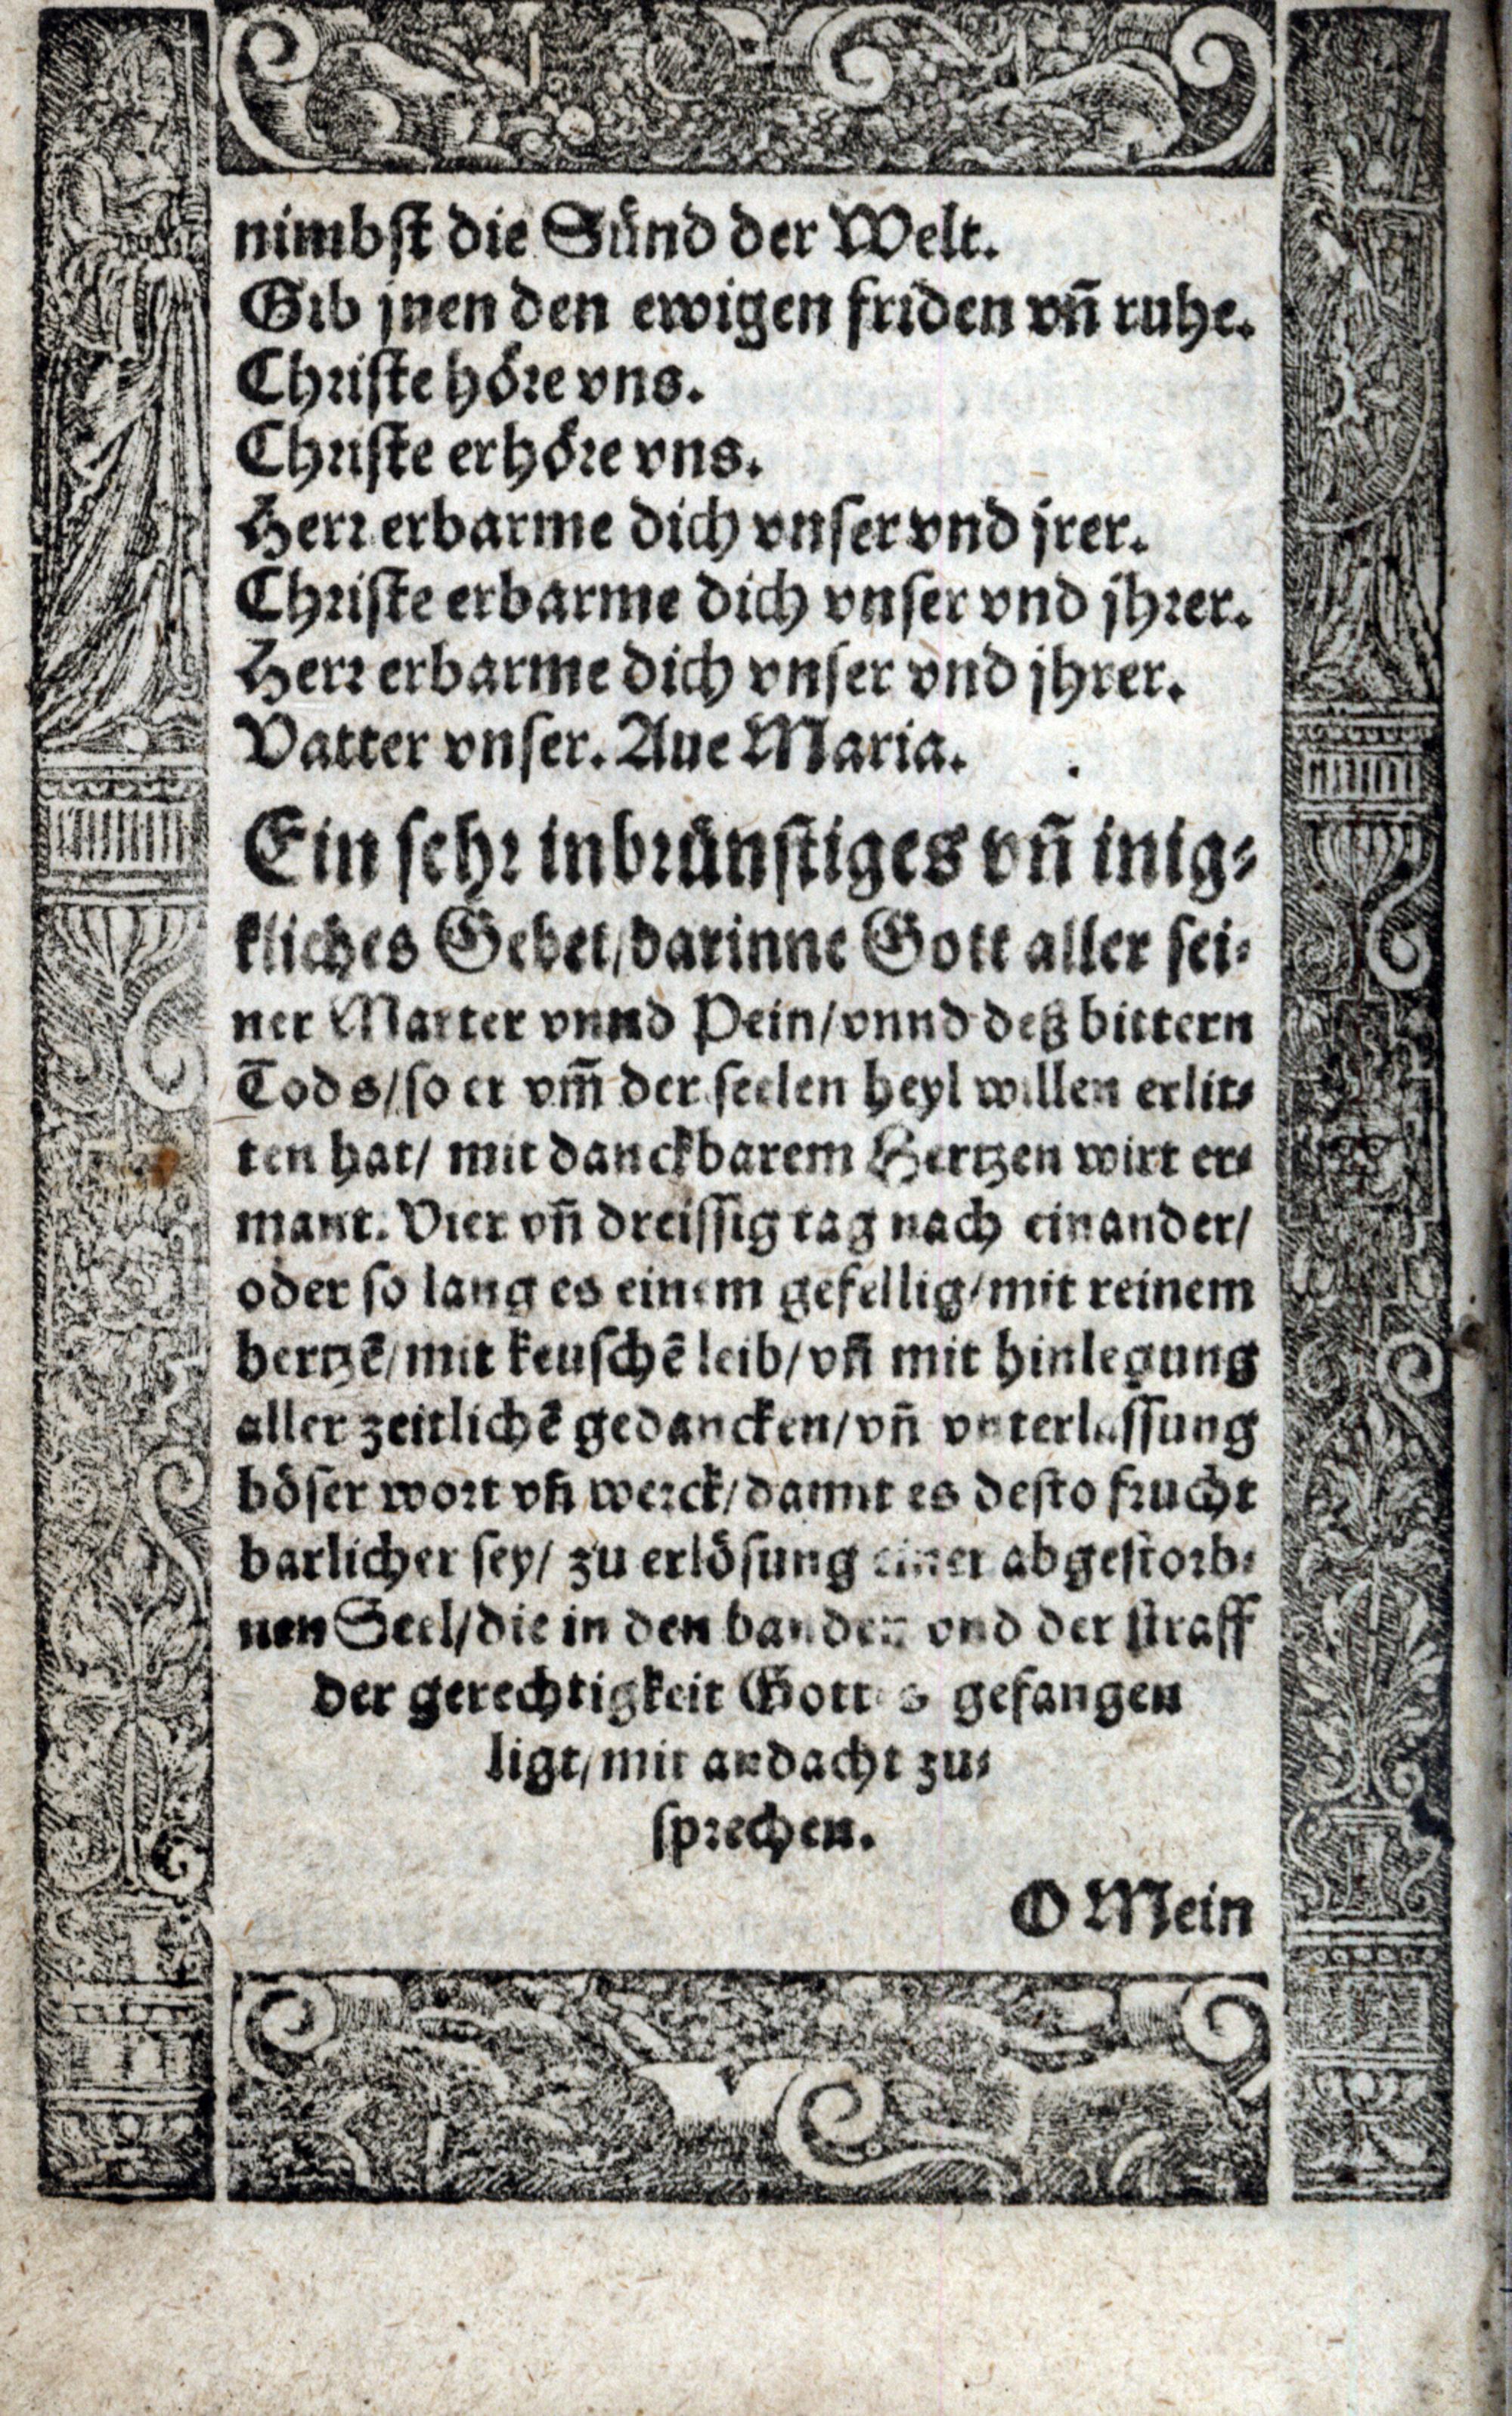 nimbſt die Sünd der Welt.
Gib jnen den ewigen friden vn̄ ruhe.
Chriſte höre vns.
Chriſte erhöre vns.
Herr erbarme dich vnſer vnd jrer.
Chriſte erbarme dich vnſer vnd jhrer.
Herr erbarme dich vnſer vnd jhrer.
Vatter vnſer. Aue Maria.
Ein ſehr inbrünſtiges vn̄ inig⸗
kliches Gebet/darinne Gott aller ſei⸗
ner Marter vnnd Pein/vnnd deß bittern
Tods/ſo er vm̄ der ſeelen heyl willen erlit⸗
ten hat/ mit danckbarem Hertzen wirt er⸗
mant. Vier vn̄ dreiſſig tag nach einander/
oder ſo lang es einem gefellig/mit reinem
hertzē/mit keuſchē leib/vn̄ mit hinlegung
aller zeitlichē gedancken/vn̄ vnterlaſſung
böſer wort vn̄ werck/damit es deſto frucht
barlicher ſey/ zu erlöſung einer abgeſtorb⸗
nen Seel/die in den banden vnd der ſtraff
der gerechtigkeit Gottes gefangen
ligt/mit andacht zu⸗
ſprechen.
O Mein